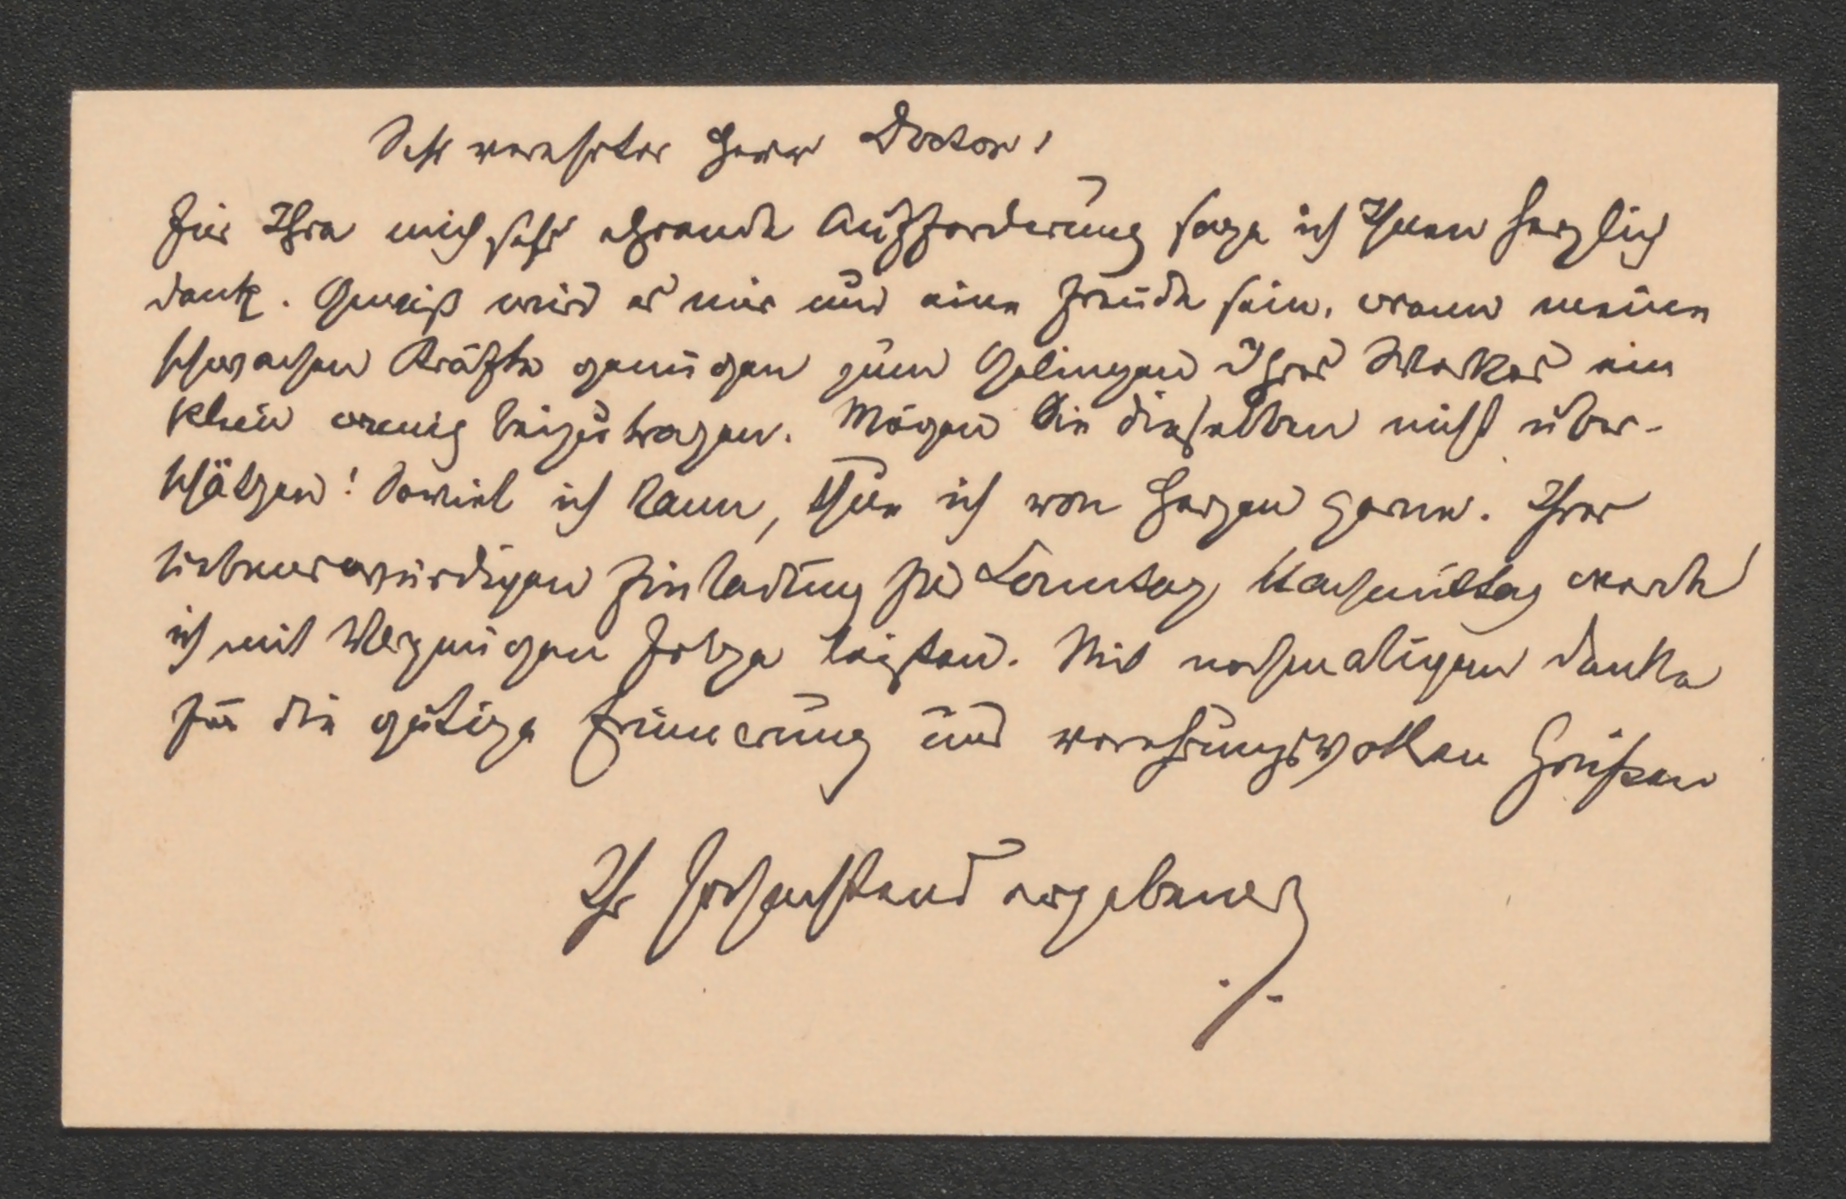 Sehr verehrter Herr Doctor!
Für Ihre mich sehr ehrende Aufforderung sage ich Ihnen herzlich
Dank. Gewiß wird es mir nur eine Freude sein, wenn meine
schwachen Kräfte genügen zum Gelingen Ihres Werkes ein
klein wenig beizutragen. Mögen Sie dieselben nicht über-
schätzen! Soviel ich kann, thue ich von Herzen gerne. Ihrer
liebenswürdigen Einladung für Sonntag Nachmittag werde
ich mit Vergnügen Folge leisten. Mit nochmaligem Danke
für die gütige Erinnerung und verehrungsvollen Grüßen
Ihr hochachtend ergebener